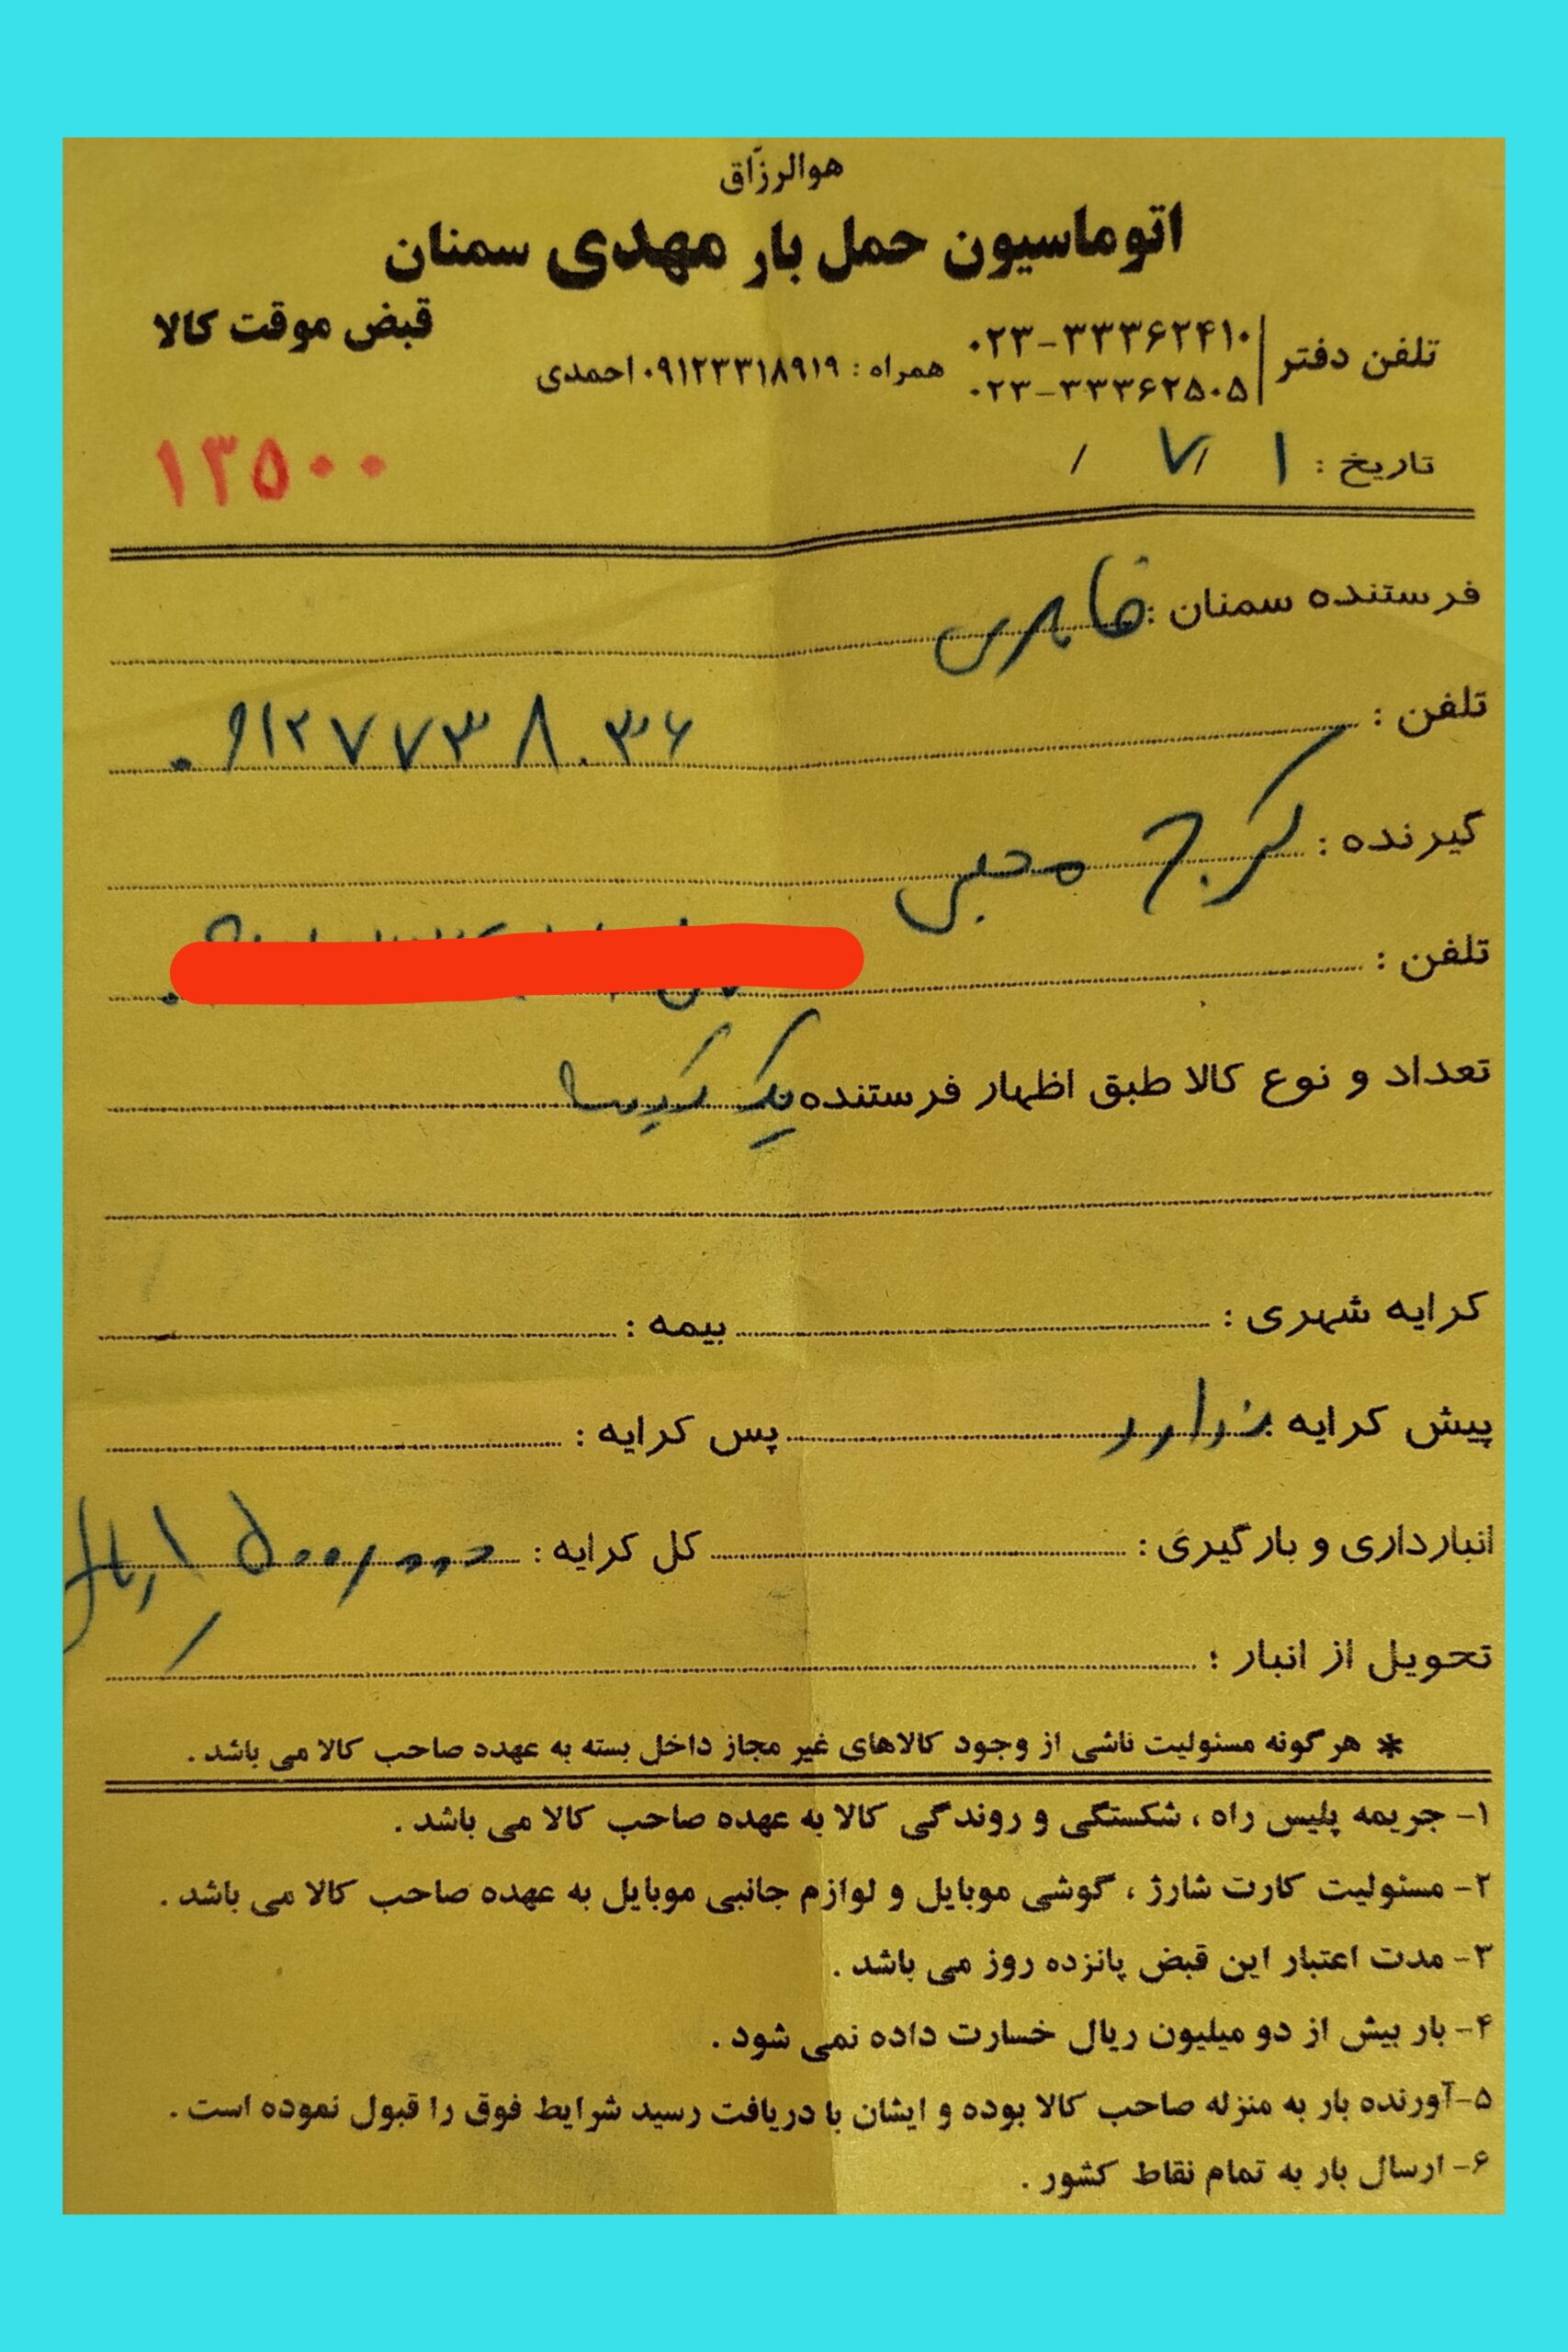 هوالرزّاق
اتوماسیون حمل بار مهدی سمنان
قبض موقت کالا
تلفن دفتر ۰۲۳-۳۳۳۶۲۴۱۰
۰۲۳-۳۳۳۶۲۵۰۵
همراه : ۰۹۱۲۳۳۱۸۹۱۹ احمدی
تاریخ : ۱ / ۷ /
۱۳۵۰۰
فرستنده سمنان :
تلفن : ۰۹۱۲۷۷۳۸۰۳۶
گیرنده : کرج محبی
تلفن :
تعداد و نوع کالا طبق اظهار فرستنده یک
کرایه شهری : بیمه :
پیش کرایه : ندارد پس کرایه :
انبارداری و بارگیری : کل کرایه :
تحویل از انبار :
* هرگونه مسئولیت ناشی از وجود کالاهای غیر مجاز داخل بسته به عهده صاحب کالا می باشد .
۱- جریمه پلیس راه ، شکستگی و روندگی کالا به عهده صاحب کالا می باشد .
۲- مسئولیت کارت شارژ ، گوشی موبایل و لوازم جانبی موبایل به عهده صاحب کالا می باشد .
۳- مدت اعتبار این قبض پانزده روز می باشد .
۴- بار بیش از دو میلیون ریال خسارت داده نمی شود .
۵-آورنده بار به منزله صاحب کالا بوده و ایشان با دریافت رسید شرایط فوق را قبول نموده است .
۶- ارسال بار به تمام نقاط کشور .